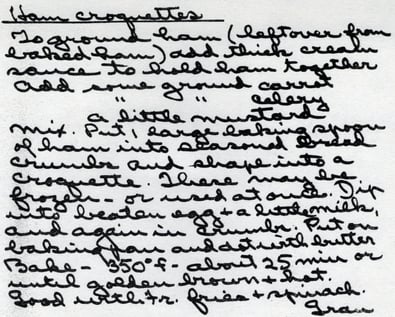 Ham croquettes
To ground ham (leftover from
baked ham) add thick cream
sauce to hold ham together
add some ground carrot
" " " celery
a little mustard
mix. Put 1 large baking spoon
of ham into seasoned bread
crumbs and shape into a
croquette. These may be
frozen - or used at once. Dip
into beaten egg + a little milk,
and again in crumbs. Put on
baking pan and dot with butter
Bake - 350° f - about 25 min or
until golden brown + hot.
Good with fr. fries + spinach.
Gran